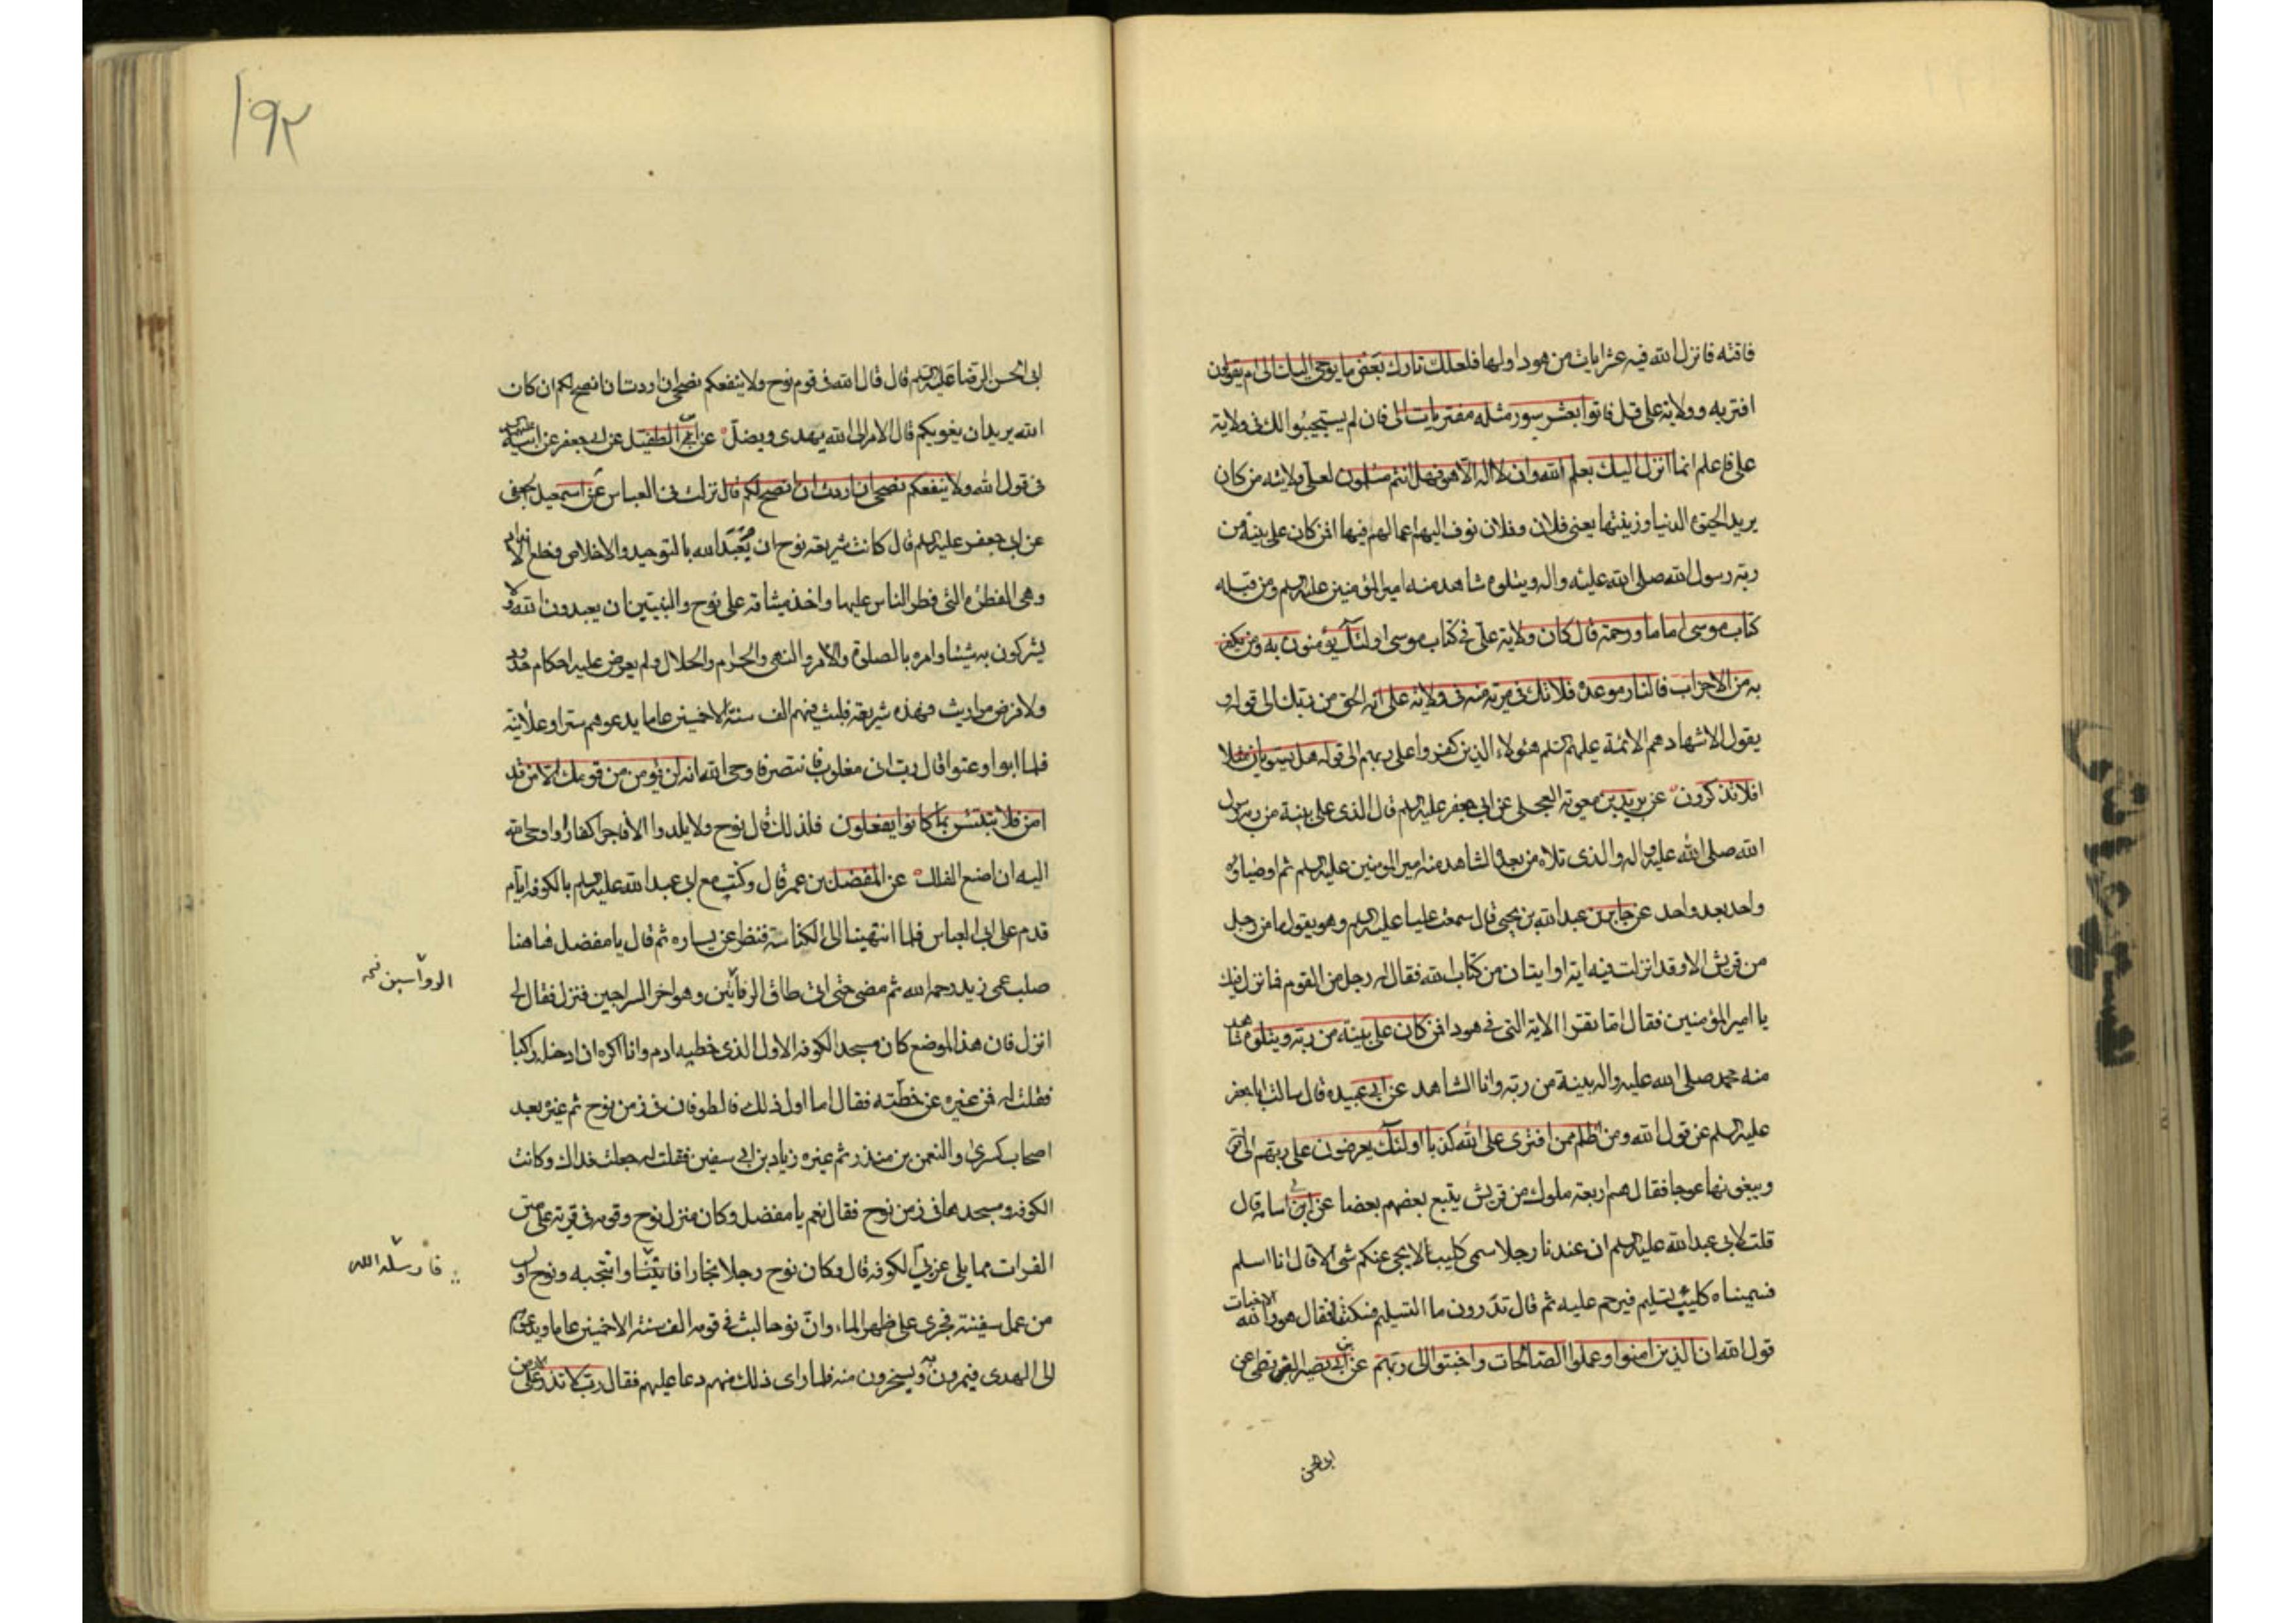 فاقته فانزل الله فيه عشر ايات من هود اولها فلعلك تارك بعض ما يوحى اليك الى ام يقولون
افتريه وولاية على قل فاتوا بعشر سور مثله مفتريات الى فان لم يستجيبوا لك فى ولاية
على فاعلم انما انزل اليك بعلم الله وان لا اله الا هو فهل انتم مسلمون لعلى ولايته من كان
يريد الحيوة الدنيا وزينتها يعنى فلان وفلان نوف اليهم اعمالهم فيها افمن كان على بينة من
ربه رسول الله صلى الله عليه واله ويتلوه شاهد منه امير المؤمنين عليه السلم ومن قبله
كتاب موسى اماما ورحمة قال كان ولاية على فى كتاب موسى اولئك يؤمنون به ومن يكفر
به من الاحزاب فالنار موعده فلا تك فى مرية منه فى ولاية على انه الحق من ربك الى قوله و
يقول الاشهاد هم الائمة عليهم السلم هئولاء الذين كفروا على ربهم الى قوله هل يستويان مثلا
افلا تذكرون عن بريد بن معوية العجلى عن ابى جعفر عليه السلم قال الذى على بينة من ربه رسول
الله صلى الله عليه واله والذى تلاه من بعده الشاهد منه امير المومنين عليه السلم ثم اوصياؤه
واحد بعد واحد عن جابر بن عبد الله بن يحيى قال سمعت عليا عليه السلم وهو يقول ما من رجل
من قريش الا وقد انزلت فيه اية او ايتان من كتاب الله فقال له رجل من القوم فما نزل فيك
يا امير المؤمنين فقال اما تقرا الاية التى فى هود افمن كان على بينة من ربه ويتلوه شاهد
منه محمد صلى الله عليه واله بينة من ربه وانا الشاهد عن ابى عبيده قال سالت ابا جعفر
عليه السلم عن قول الله ومن اظلم ممن افترى على الله كذبا اولئك يعرضون على ربهم الى قوله
ويبغونها عوجا فقال هم اربعة ملوك من قريش يتبع بعضهم بعضا عن ابى اسامه قال
قلت لابى عبد الله عليه السلم ان عندنا رجلا سمى كليبا لا يجى عنكم شى الا قال انا اسلم
فسميناه كليب تسليم فترحم عليه ثم قال تدرون ما التسليم فسكتنا فقال هو والله الاخبات
قول الله ان الذين امنوا وعملوا الصالحات واخبتوا الى ربهم عن ابن ابى نصر البزنطى عن
ابى الحسن
١٩٢
ابى الحسن الرضا عليه السلم قال قال الله فى قوم نوح ولا ينفعكم نصحى ان اردت ان انصح لكم ان كان
الله يريد ان يغويكم قال الامر الى الله يهدى ويضل عن ابى الطفيل عن ابى جعفر عن ابيه عليه السلم
فى قول الله ولا ينفعكم نصحى ان اردت ان انصح لكم قال نزلت فى العباس عن اسمعيل الجعفى
عن ابى جعفر عليه السلم قال كانت شريعة نوح ان يعبد الله بالتوحيد والاخلاص وخلع الانداد
وهى الفطرة التى فطر الناس عليها واخذ ميثاقه على نوح والنبيين ان يعبدون الله ولا
يشركون به شيئا وامره بالصلوة والامر والنهى والحرام والحلال ولم يعرض عليه احكام حدود
ولا فرض مواريث فهذه شريعته فلبث فيهم الف سنة الا خمسين عاما يدعوهم سرا وعلانية
فلما ابوا وعتوا قال رب انى مغلوب فانتصر فاوحى الله انه لن يؤمن من قومك الا من قد
امن فلا تبتئس بما كانوا يفعلون فلذلك قال نوح ولا يلدوا الا فاجرا كفارا واوحى الله
اليه ان اصنع الفلك عن المفضل بن عمر قال وكنت مع ابى عبد الله عليه السلم بالكوفه ايام
قدم على ابى العباس فلما انتهينا الى الكناسة فنظر عن يساره ثم قال يا مفضل هاهنا
صلب عمى زيد رحمه الله ثم مضى حتى اتى طاق الرفائين وهو اخر السراجين فنزل فقال لى
الرواسين نخه
انزل فان هذا الموضع كان مسجد الكوفه الاول الذى خطيه ادم وانا اكره ان ادخله راكبا
فقلت له فمن غيره عن خطته فقال اما اول ذلك فالطوفان فى زمن نوح ثم غيره بعد
اصحاب كسرى والنعمن بن منذر ثم غيره زياد بن ابى سفين فقلت له جعلت فداك وكانت
الكوفه ومسجدها فى زمن نوح فقال نعم يا مفضل وكان منزل نوح وقومه فى قرية على متن
الفرات مما يلى غربى الكوفه قال وكان نوح رجلا نجارا وانتجبه ونوح اول
فارسله الله
من عمل سفينة فجرى على ظهر الماء وان نوحا لبث فى قومه الف سنة الا خمسين عاما ويدعوهم
الى الهدى فيمرون به ويسخرون منه فلما راى ذلك منهم دعا عليهم فقال رب لا تذر على